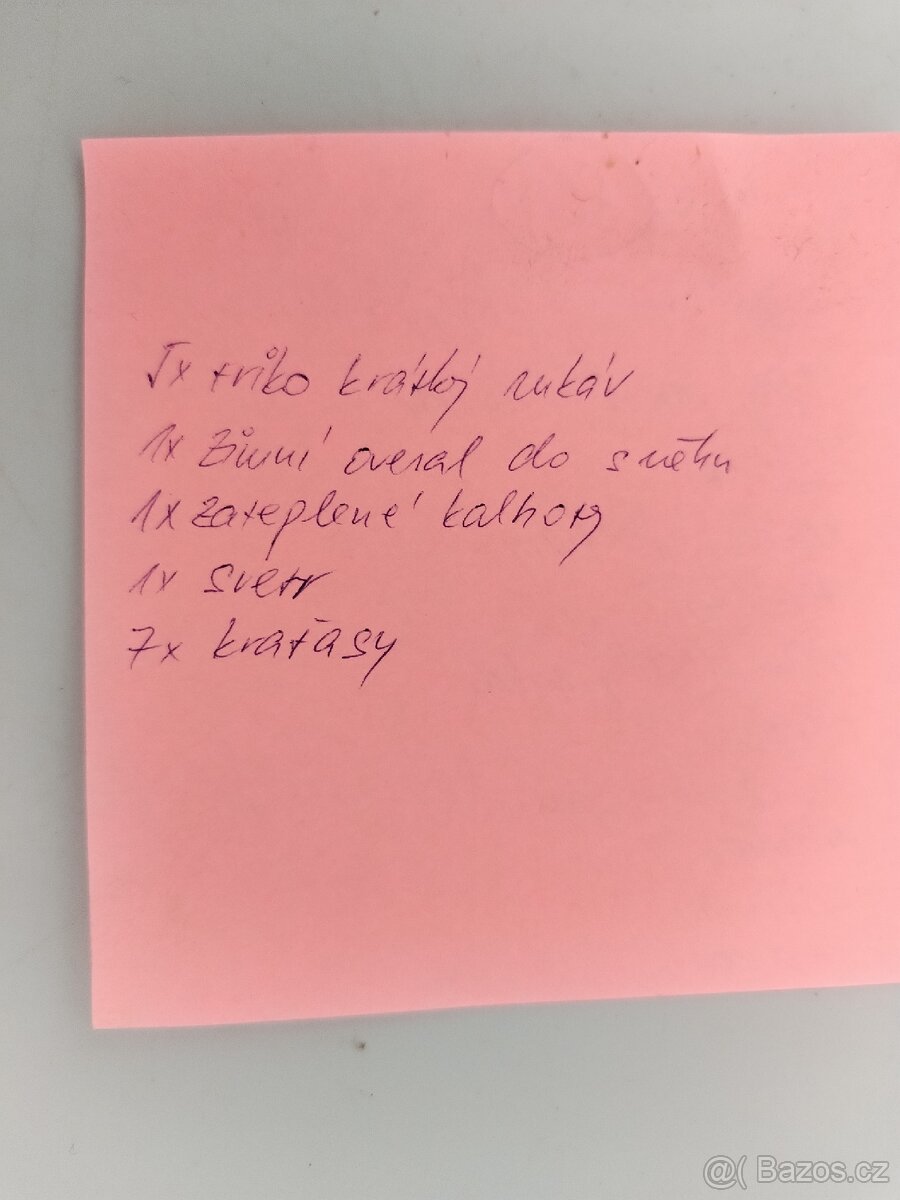 5x triko krátký rukáv
1x zimní overal do sněhu
1x zateplené kalhoty
1x svetr
7x kraťasy
@( Bazos.cz